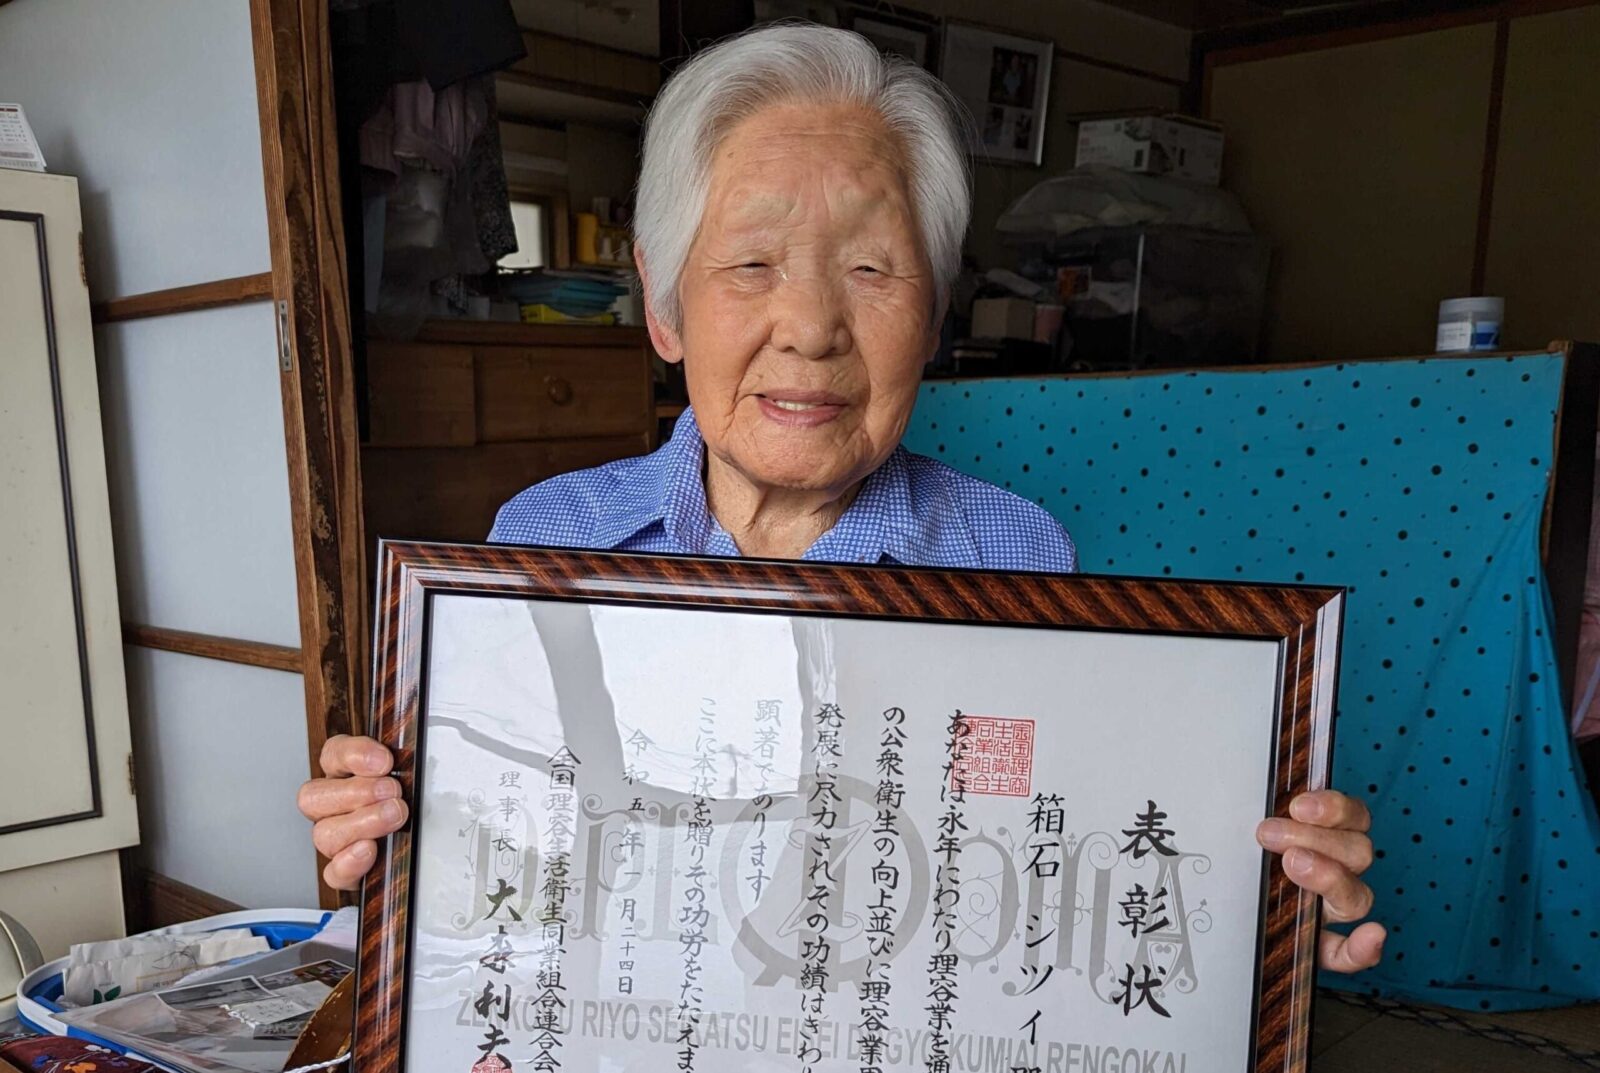 表彰状
箱石 シツイ
あなたは永年にわたり理容業を通
の公衆衛生の向上並びに理容業界
発展に尽力されその功績はきわ
顕著であります
ここに本状を贈りその功労をたたえま
令和五年一月二十四日
全国理容生活衛生同業組合連合会
理事長 大森利夫
全国理容生活衛生同業組合連合会
DIPLOMA
ZENKOKU RIYO SEIKATSU EISEI DOGYO KUMIAI RENGOKAI